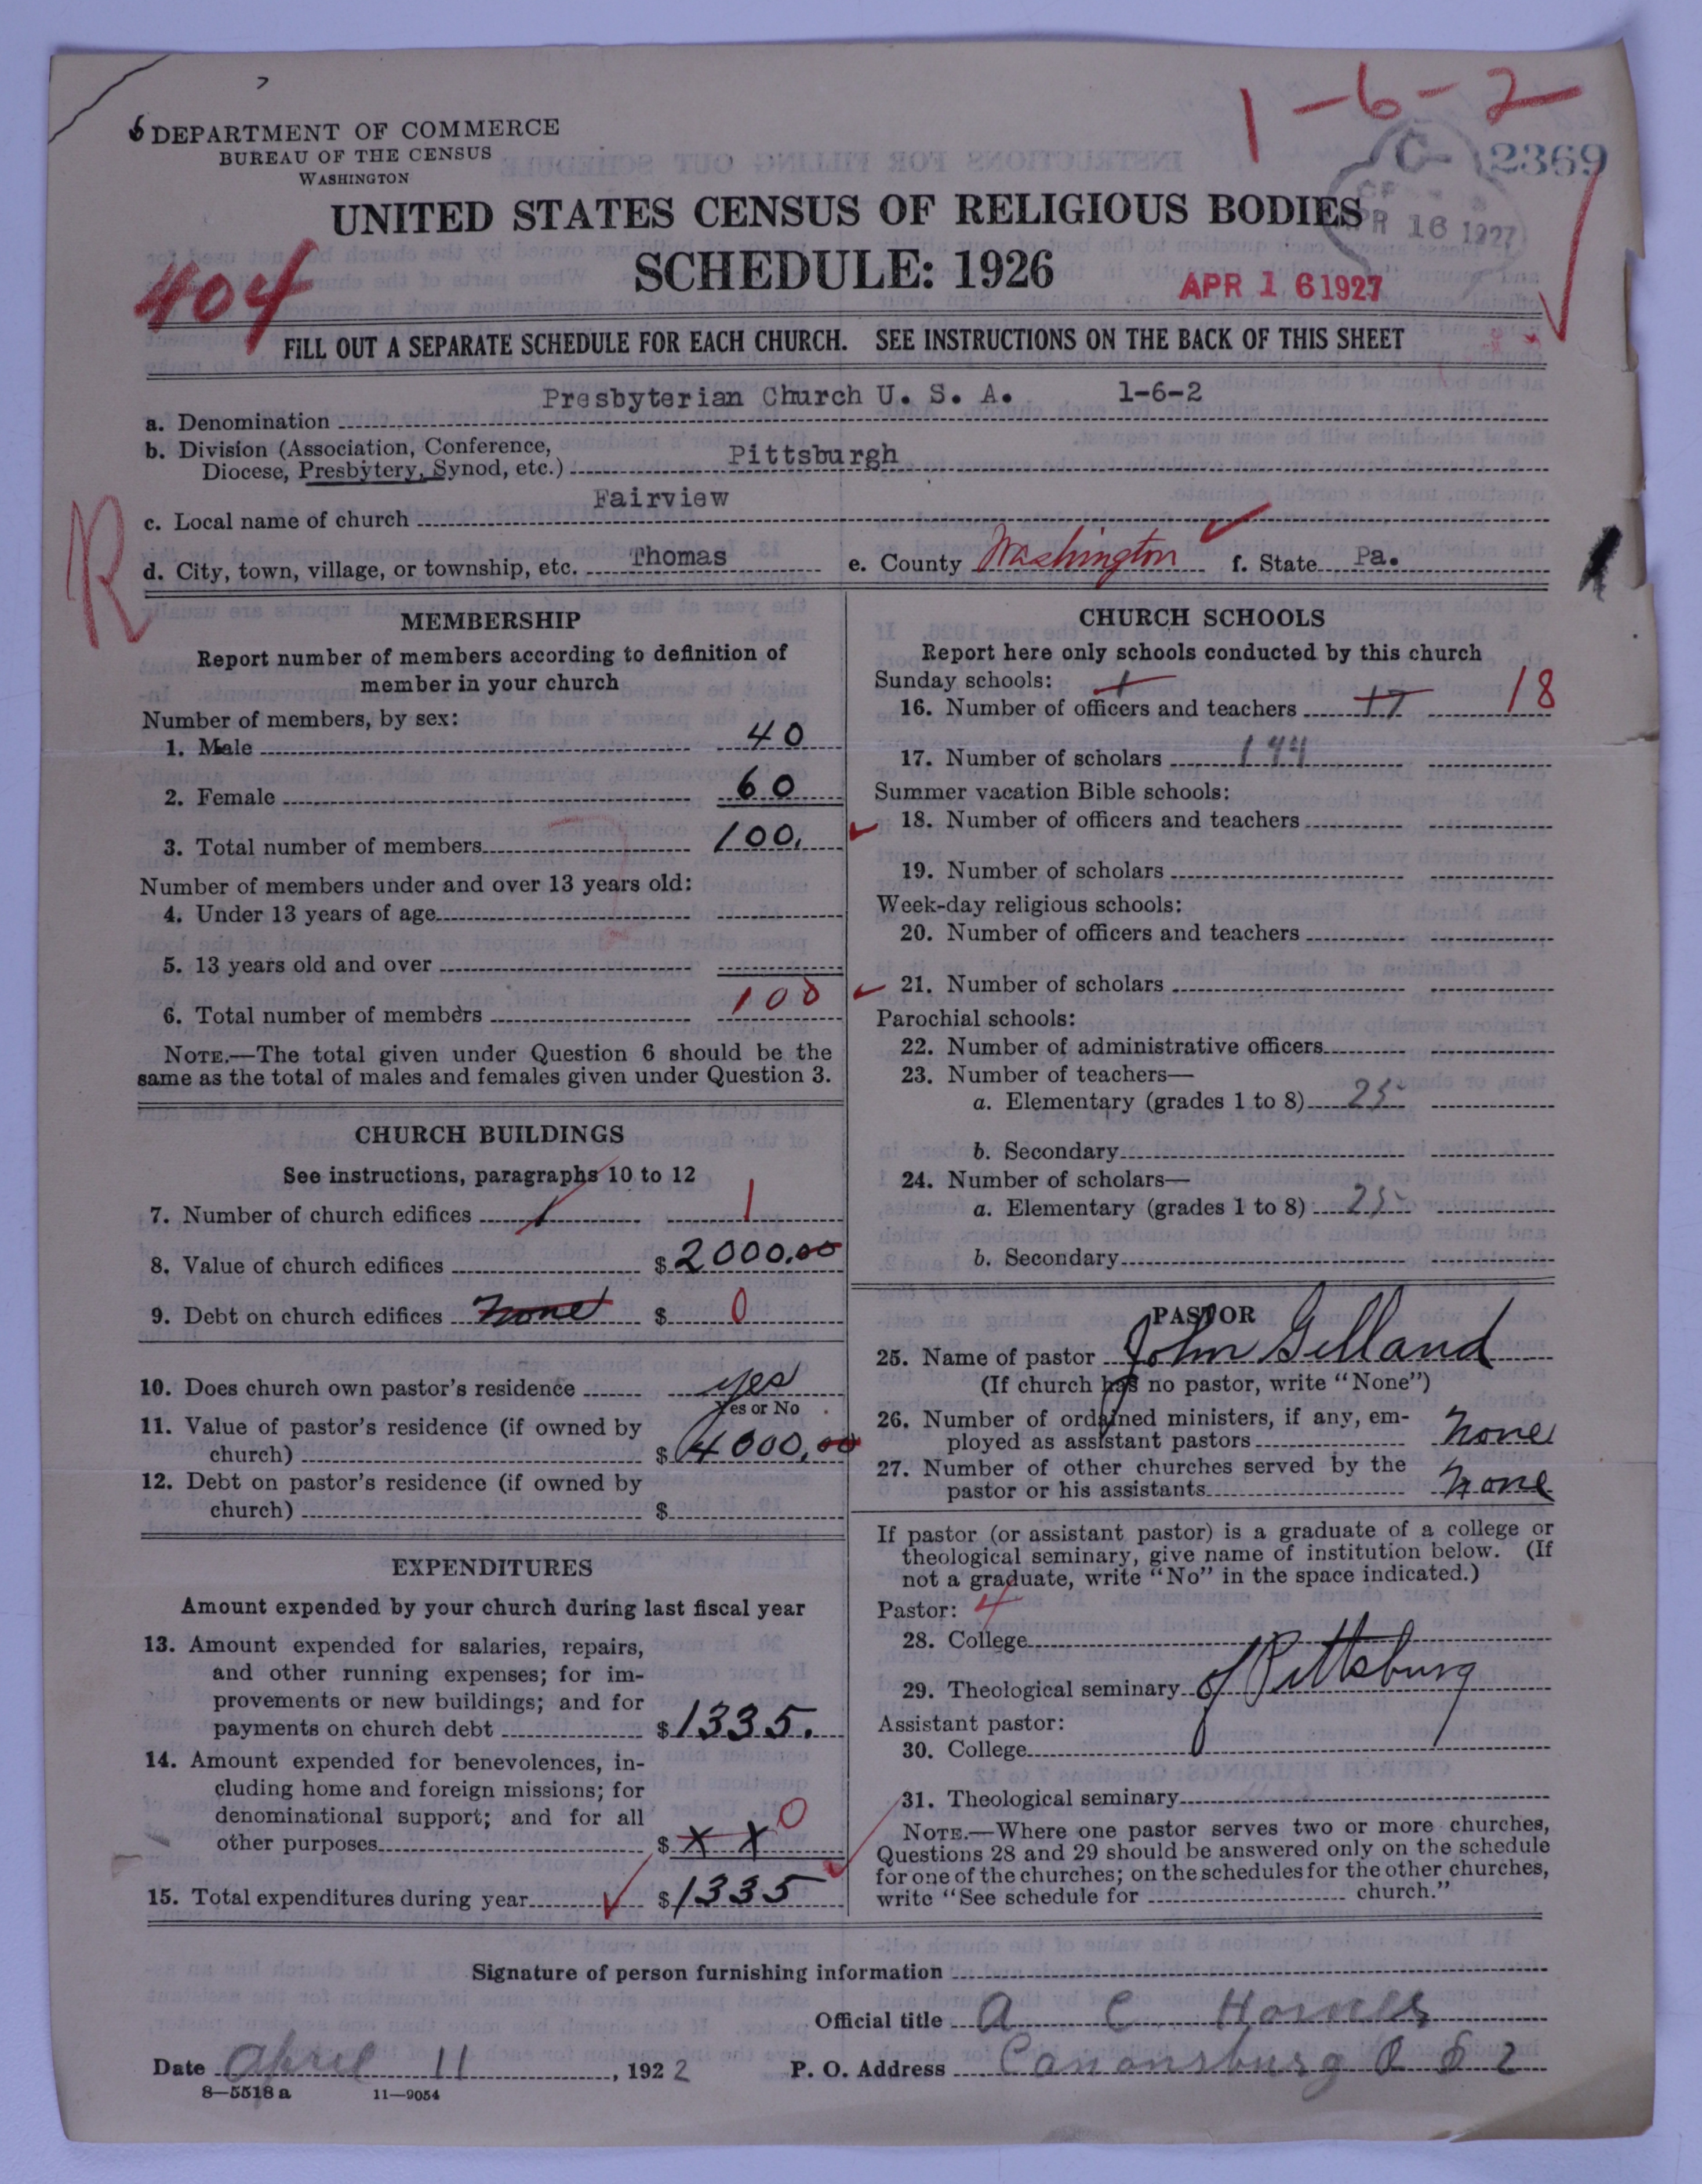 1-6-2
DEPARTMENT OF COMMERCE
BUREAU OF THE CENSUS
WASHINGTON
C- 2369
UNITED STATES CENSUS OF RELIGIOUS BODIES
APR 16 1927
SCHEDULE: 1926
404
APR 16 1927
FILL OUT A SEPARATE SCHEDULE FOR EACH CHURCH. SEE INSTRUCTIONS ON THE BACK OF THIS SHEET
a. Denomination Presbyterian Church U. S. A. 1-6-2
b. Division (Association, Conference,
Diocese, Presbytery, Synod, etc.) Pittsburgh
c. Local name of church Fairview
R
d. City, town, village, or township, etc. Thomas e. County Washington f. State Pa.
MEMBERSHIP
Report number of members according to definition of
member in your church
Number of members, by sex:
1. Male 40
2. Female 60
3. Total number of members 100.
Number of members under and over 13 years old:
4. Under 13 years of age
5. 13 years old and over
6. Total number of members 100
NOTE.—The total given under Question 6 should be the
same as the total of males and females given under Question 3.
CHURCH BUILDINGS
See instructions, paragraphs 10 to 12
7. Number of church edifices 1 1
8. Value of church edifices $ 2000.00
9. Debt on church edifices none $ 0
10. Does church own pastor's residence yes
Yes or No
11. Value of pastor's residence (if owned by
church) $ 4000.00
12. Debt on pastor's residence (if owned by
church) $
EXPENDITURES
Amount expended by your church during last fiscal year
13. Amount expended for salaries, repairs,
and other running expenses; for im-
provements or new buildings; and for
payments on church debt $ 1335.
14. Amount expended for benevolences, in-
cluding home and foreign missions; for
denominational support; and for all
other purposes $ x x 0
15. Total expenditures during year $ 1335
CHURCH SCHOOLS
Report here only schools conducted by this church
Sunday schools: 1
16. Number of officers and teachers 17 18
17. Number of scholars 144
Summer vacation Bible schools:
18. Number of officers and teachers
19. Number of scholars
Week-day religious schools:
20. Number of officers and teachers
21. Number of scholars
Parochial schools:
22. Number of administrative officers
23. Number of teachers—
a. Elementary (grades 1 to 8) 25
b. Secondary
24. Number of scholars—
a. Elementary (grades 1 to 8) 25
b. Secondary
PASTOR
25. Name of pastor John Gilland
(If church has no pastor, write "None")
26. Number of ordained ministers, if any, em-
ployed as assistant pastors none
27. Number of other churches served by the
pastor or his assistants none
If pastor (or assistant pastor) is a graduate of a college or
theological seminary, give name of institution below. (If
not a graduate, write "No" in the space indicated.)
Pastor: 4
28. College
29. Theological seminary of Pittsburg
Assistant pastor:
30. College
31. Theological seminary
NOTE.—Where one pastor serves two or more churches,
Questions 28 and 29 should be answered only on the schedule
for one of the churches; on the schedules for the other churches,
write "See schedule for church."
Signature of person furnishing information
Official title A C
Date April 11, 1922 P. O. Address Canonsburg
8-5518 a 11-9054